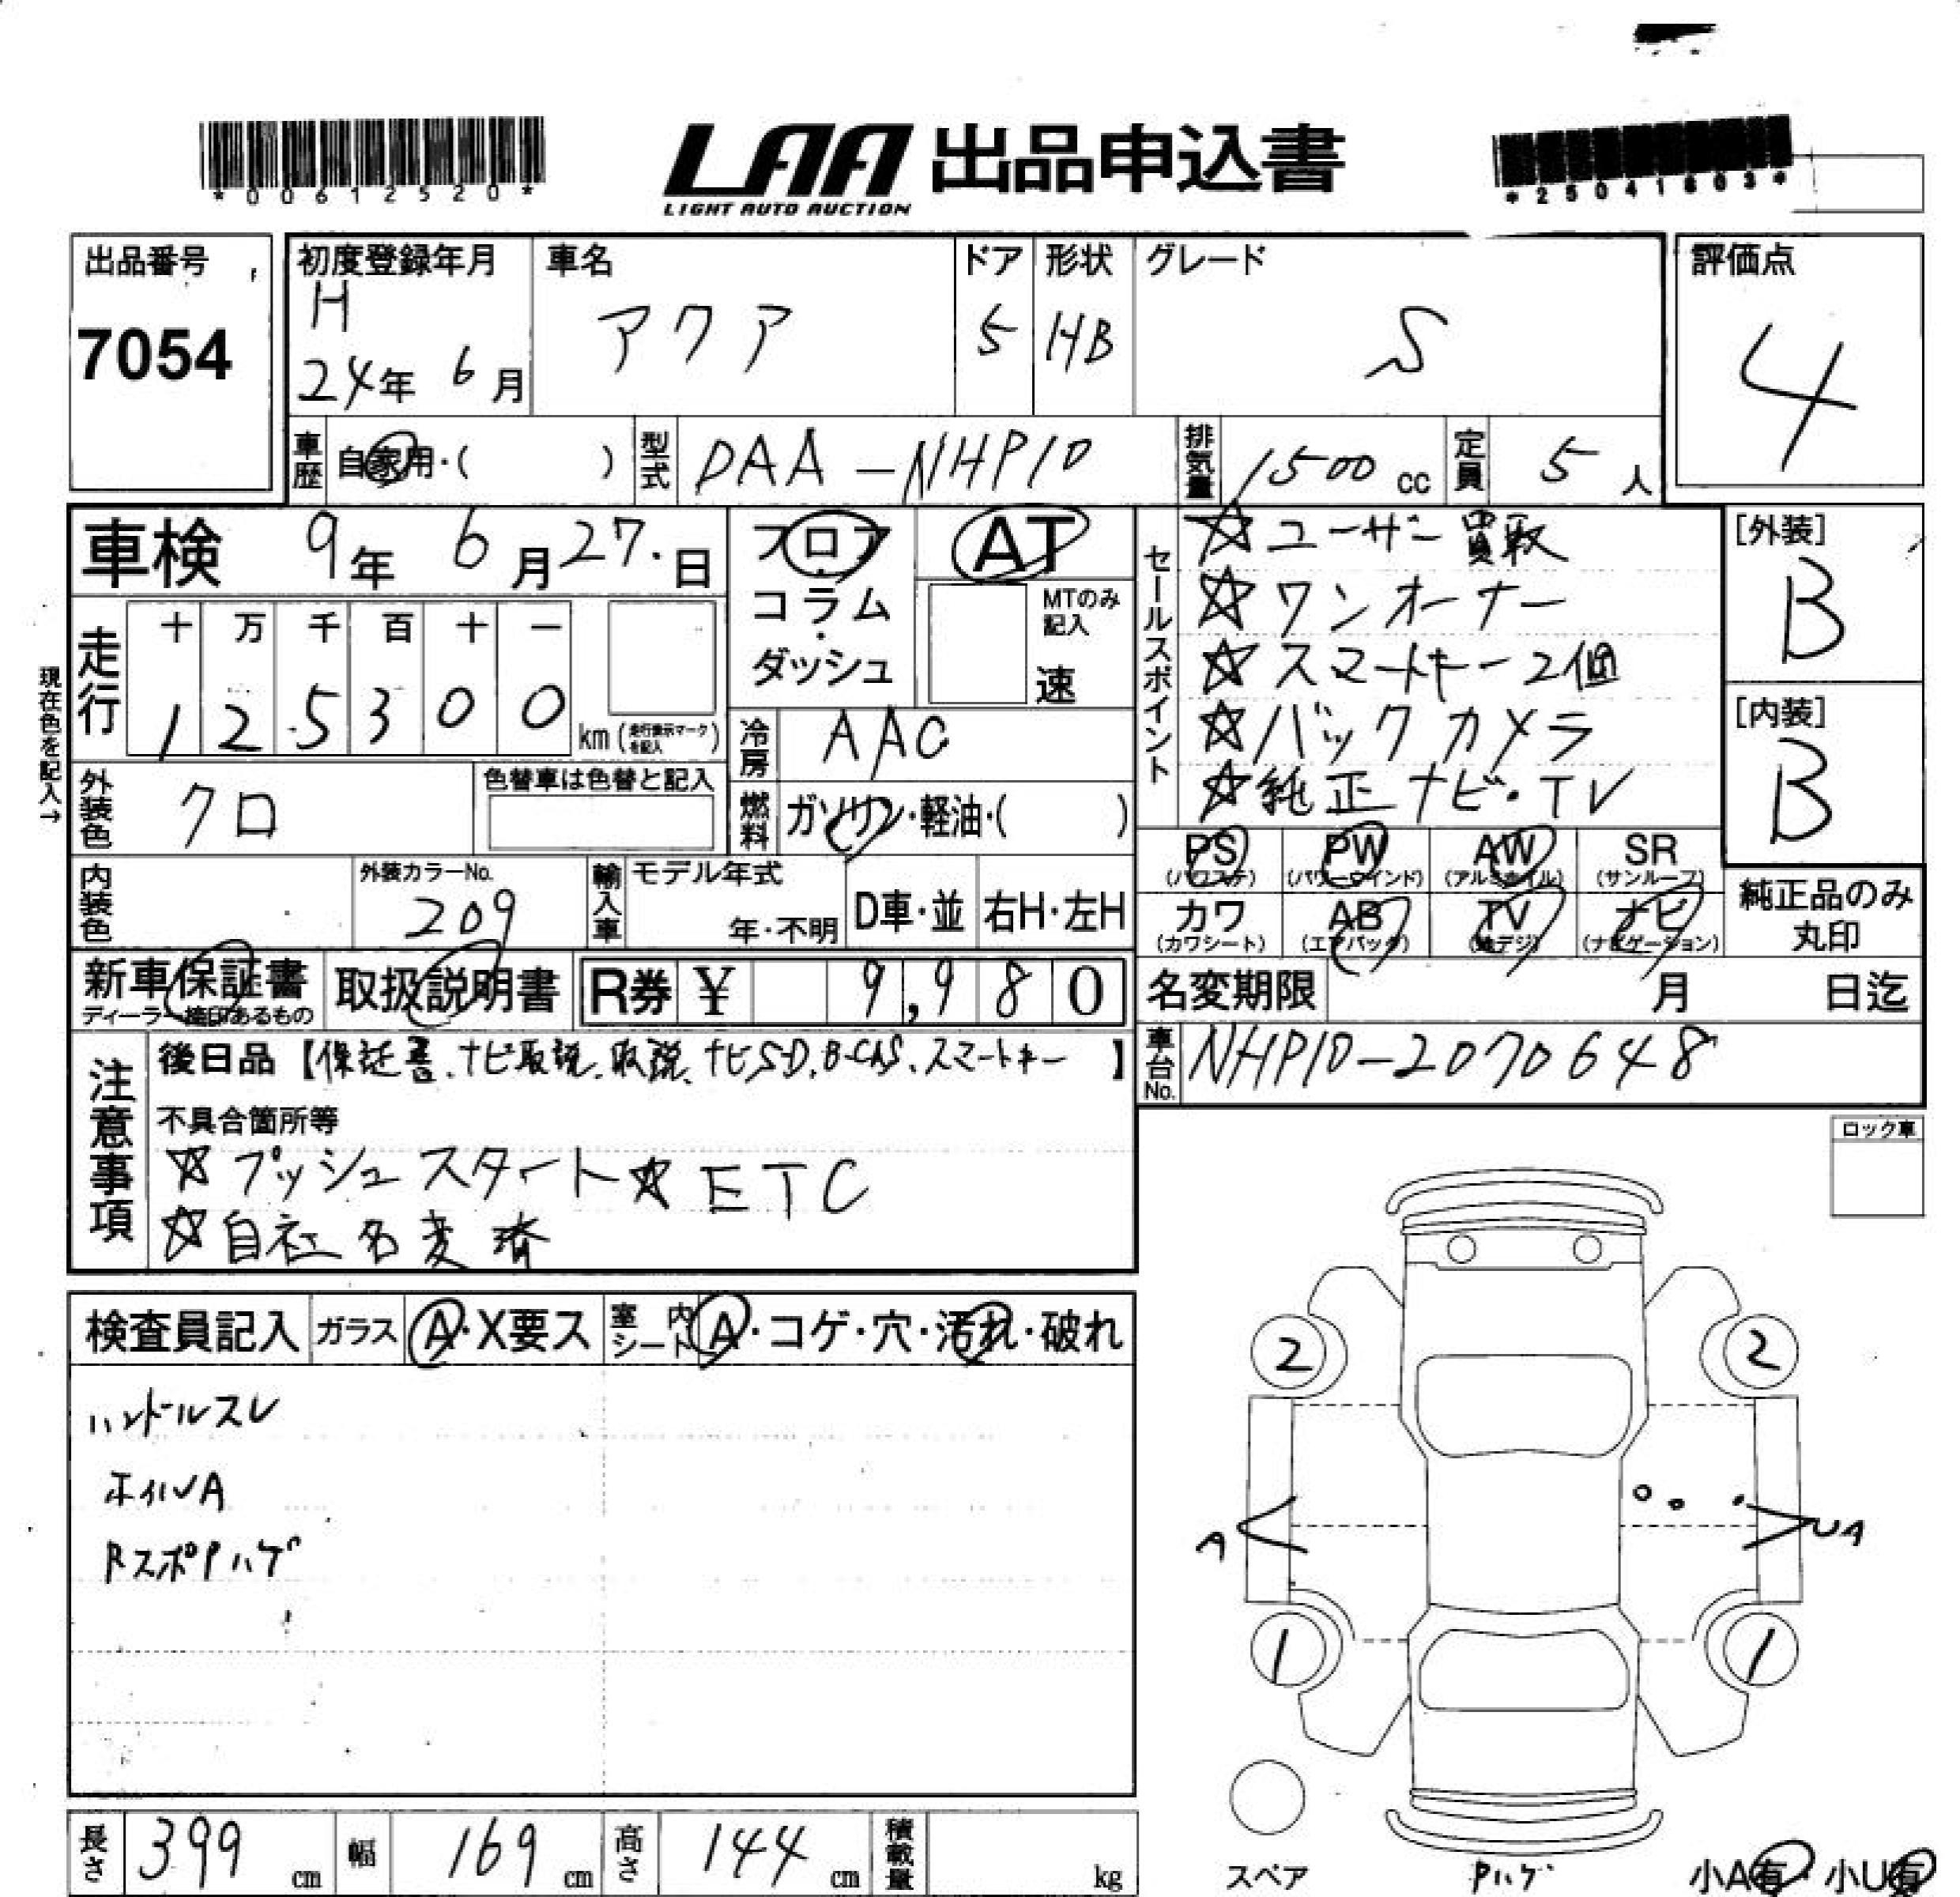 *00612520*
LAA 出品申込書
LIGHT AUTO AUCTION
*25041803*
出品番号
7054
初度登録年月
H
24年 6月
車名
アクア
ドア
5
形状
HB
グレード
S
評価点
4
車歴 自家用・( )
型式 DAA-NHP10
排気量 1500 cc
定員 5 人
車検 9年 6月27.日
走行
十 万 千 百 十 一
1 2 5 3 0 0 km(走行表示マークを記入)
現在色を記入→
外装色 クロ
色替車は色替と記入
内装色
外装カラーNo.
209
フロア・コラム・ダッシュ
AT
MTのみ記入
速
冷房 AAC
燃料 ガソリン・軽油・( )
輸入車 モデル年式
年・不明
D車・並 右H・左H
セールスポイント
☆ユーザー買取
☆ワンオーナー
☆スマートキー2個
☆バックカメラ
☆純正ナビ・TV
[外装]
B
[内装]
B
PS (パワステ)
PW (パワーウインド)
AW (アルミホイル)
SR (サンルーフ)
カワ (カワシート)
AB (エアバッグ)
TV (地デジ)
ナビ (ナビゲーション)
純正品のみ丸印
新車保証書
ディーラー捺印あるもの
取扱説明書
R券 ¥ 9,980
名変期限 月 日迄
車台No. NHP10-2070648
注意事項
後日品【保証書、ナビ取説、取説、ナビSD、B-CAS、スマートキー】
不具合箇所等
☆プッシュスタート☆ETC
☆自社名変済
ロック車
検査員記入 ガラス A・X要ス 室内シート A・コゲ・穴・汚れ・破れ
ハンドルスレ
ホイルA
RスポPハゲ
2 2
A UA
1 1
長さ 399 cm 幅 169 cm 高さ 144 cm 積載量 kg
スペア
Pハゲ
小A有・小U有